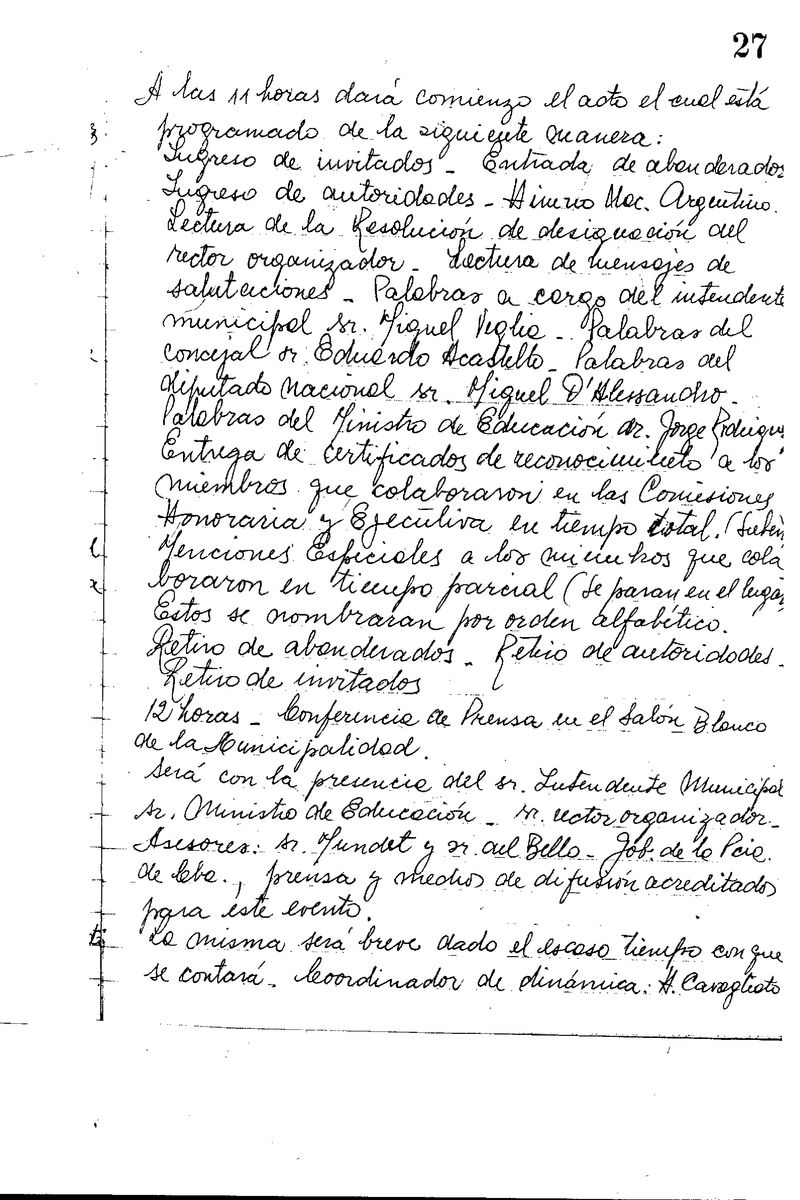 27
A las 11 horas dará comienzo el acto el cual está
programado de la siguiente manera:
Ingreso de invitados - Entrada de abanderados
Ingreso de autoridades - Himno Nac. Argentino.
Lectura de la Resolución de designación del
rector organizador - Lectura de mensajes de
salutaciones - Palabras a cargo del intendente
municipal sr. Miguel Veglia - Palabras del
concejal sr Eduardo Acastello - Palabras del
diputado nacional sr. Miguel D'Alessandro -
Palabras del Ministro de Educación dr. Jorge Rodrigu
Entrega de certificados de reconocimiento a los
miembros que colaboraron en las Comisiones
Honoraria y Ejecutiva en tiempo total. (Suben
Menciones Especiales a los miembros que cola
boraron en tiempo parcial (se paran en el lugar
Estos se nombraran por orden alfabético.
Retiro de abanderados - Retiro de autoridades -
Retiro de invitados
12 horas - Conferencia de Prensa en el Salón Blanco
de la Municipalidad.
Será con la presencia del sr. Intendente Municipal
sr. Ministro de Educación - sr. rector organizador -
Asesores: sr. Mundet y sr del Bello - Gob. de la Pcia.
de Cba., prensa y medios de difusión acreditados
para este evento.
La misma será breve dado el escaso tiempo con que
se contará - Coordinador de dinámica: H. Cavagliato